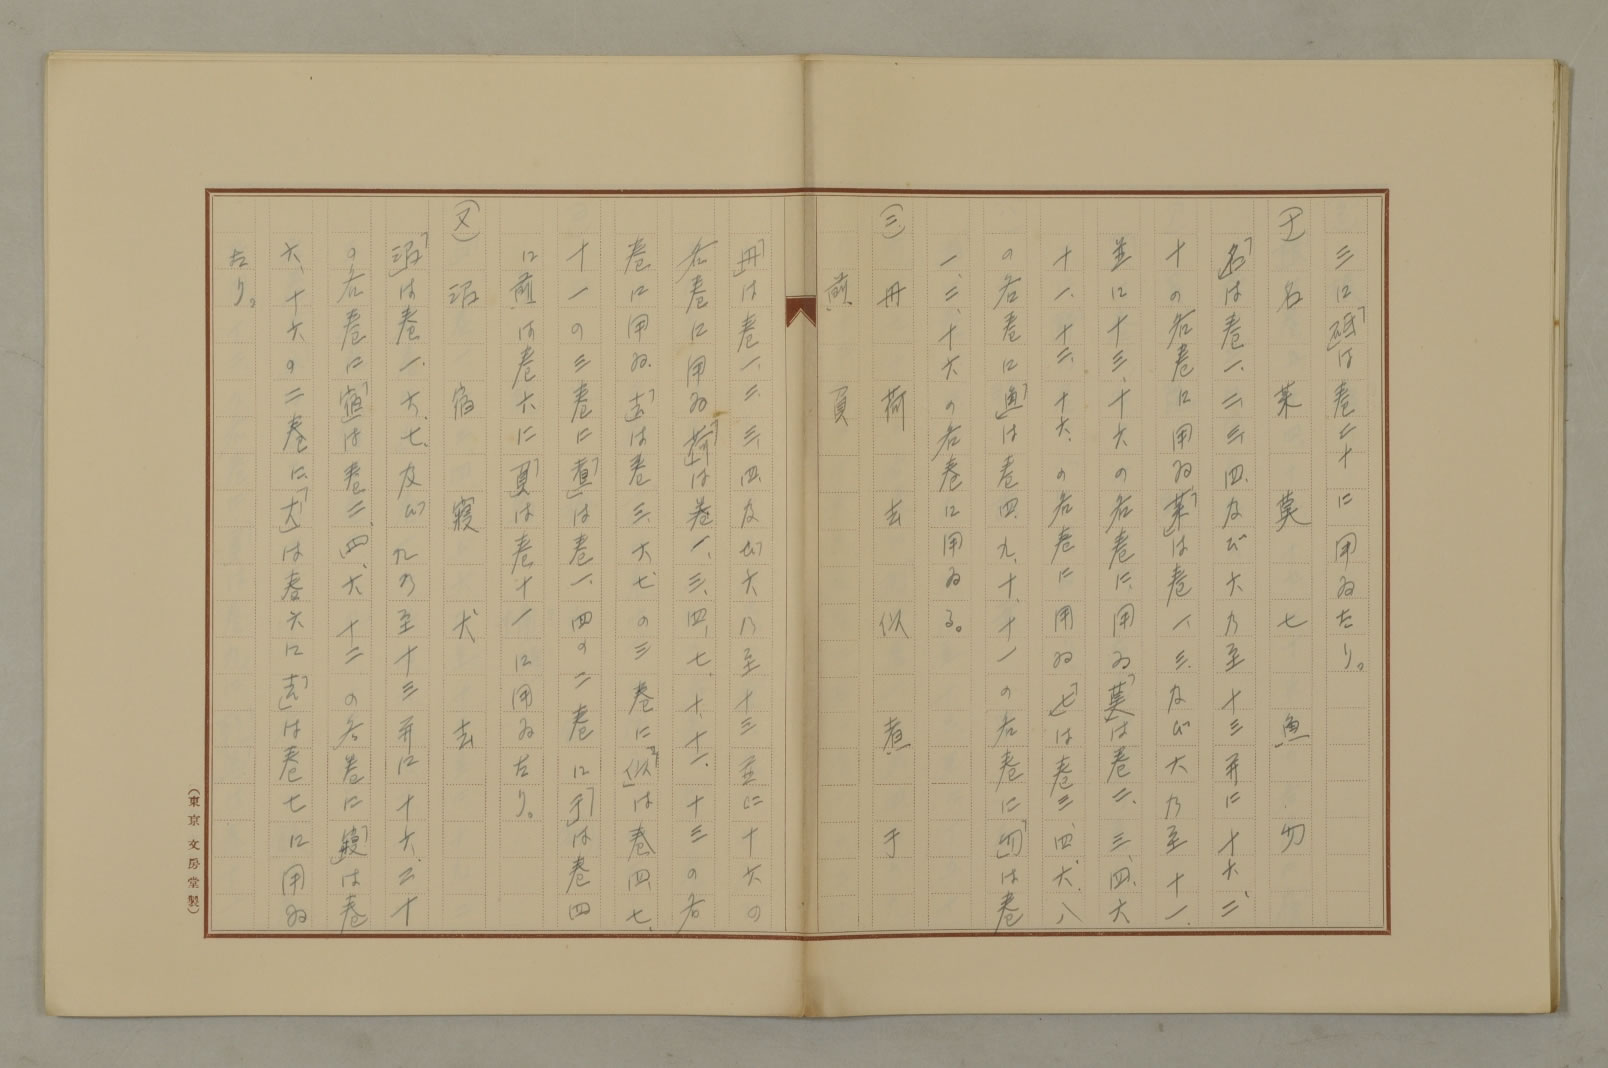 三に「砥」は巻二十に用ゐたり。
(ナ)名 菜 莫 七 魚 勿
「名」は巻一、二、三、四、及び六乃至十三并に十六、二
十の各巻に用ゐ「菜」は巻一、三、及び六乃至十一、
並に十三、十六の各巻に、用ゐ「莫」は巻二、三、四、六
十一、十二、十六、の各巻に用ゐ「七」は巻三、四、六、八
の各巻に「魚」は巻四、九、十、十一の各巻に「勿」は巻
一、二、十六の各巻に用ゐる。
(ニ)丹 荷 去 似 煮 于
煎 貢
「丹」は巻一、二、三、四、及び六乃至十三並に十六の
各巻に用ゐ「荷」は巻一、三、四、七、十、十一、十三の各
巻に用ゐ、「去」は巻三、六七、の三巻に「似」は巻四、七、
十一の三巻に「煮」は巻一、四の二巻に「于」は巻四
に「煎」は巻六に「夏」は巻十一に用ゐたり。
(ヌ)沼 宿 寝 犬 去
「沼」は巻一、六、七、及び九乃至十三并に十六、二十
の各巻に「宿」は巻二、四、六、十二の各巻に「寝」は巻
六、十六の二巻に「犬」は巻六に「去」は巻七に用ゐ
たり。
(東京 文房堂製)